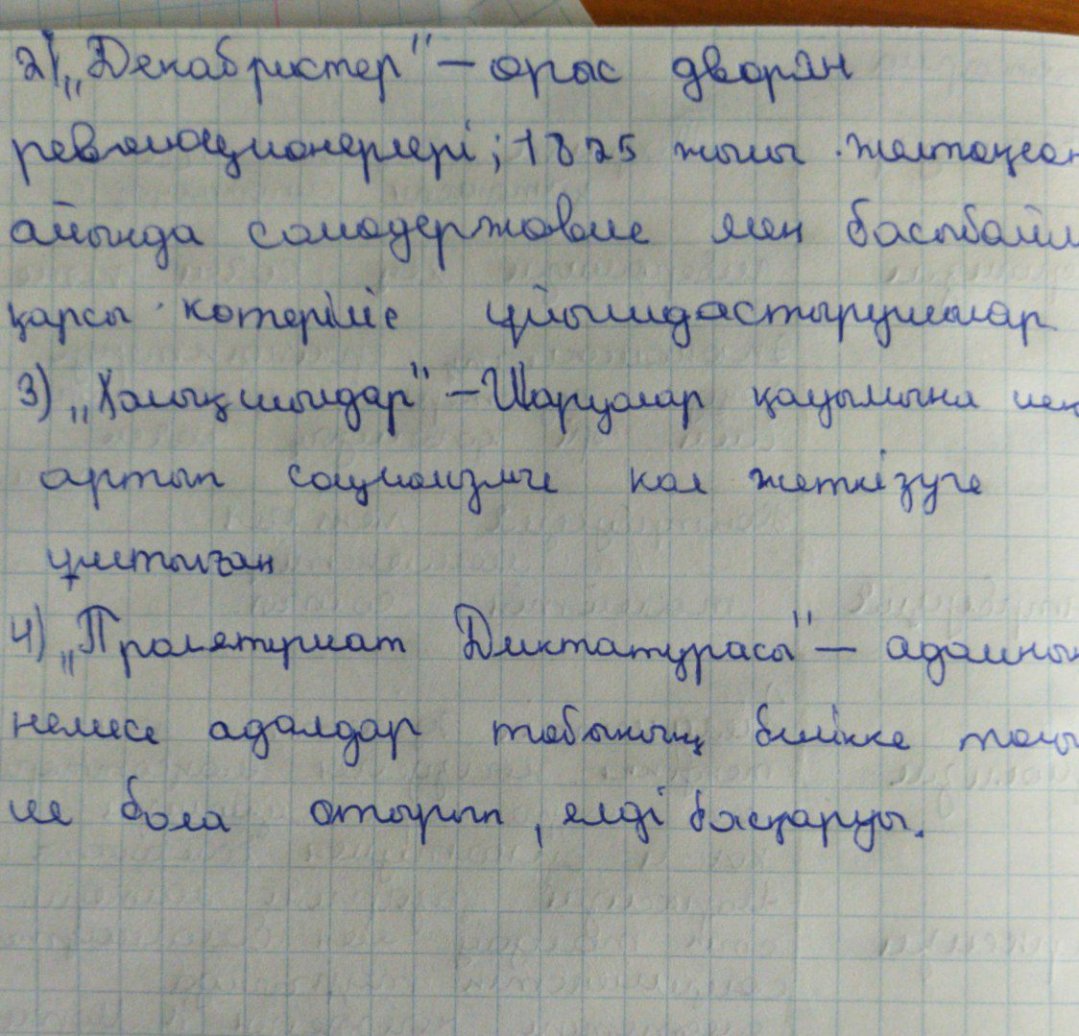 2) „Декабристер" – орыс дворян
революционерлері; 1825 жылы желтоқсан
айында самодержавие мен басыбайл
қарсы көтеріліс ұйымдастырушылар
3) „Халықшылдар" – Шаруалар қауымына
артып социализмге қол жеткізуге
ұмтылған
4) „Пролетариат Диктатурасы" – адамның
немесе адалдар тобының билікке толы
ие бола отырып, елді басқаруы.